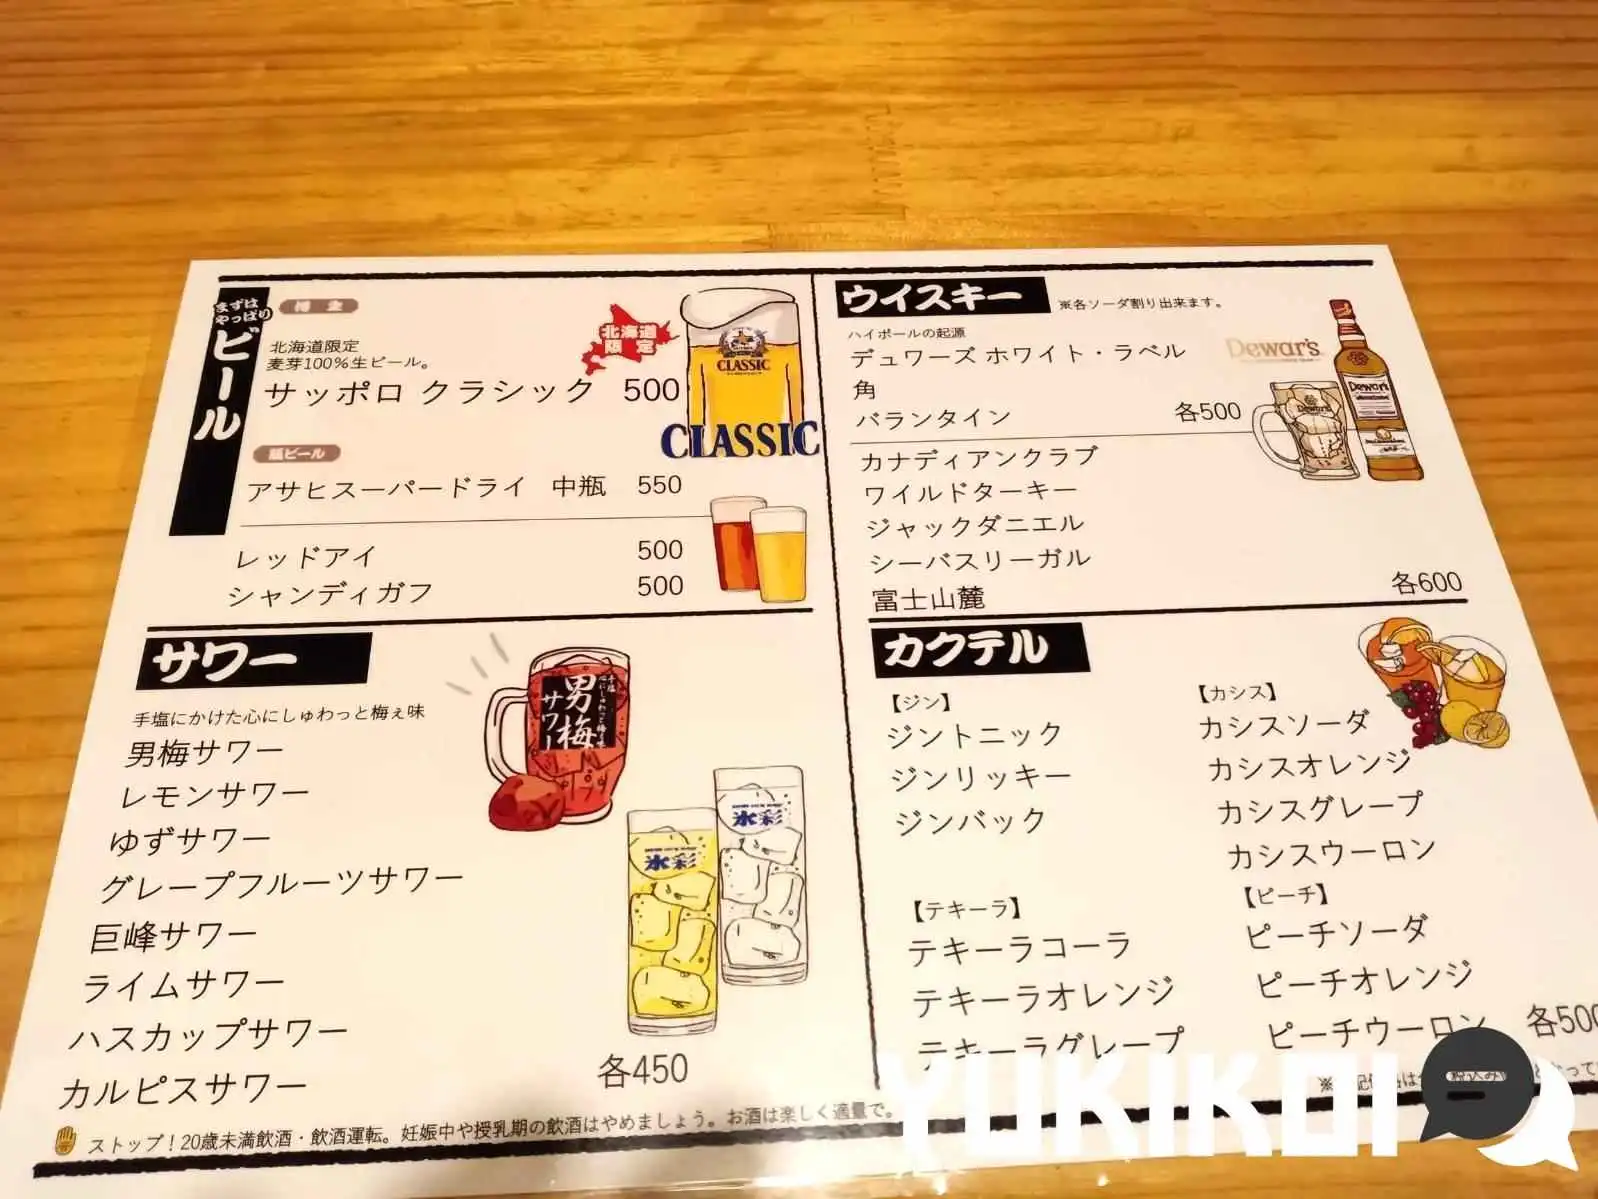 まずは
やっぱり
ビール
北海道限定
麦芽100%生ビール。
サッポロ クラシック 500
北海道
限定
CLASSIC
CLASSIC
瓶ビール
アサヒスーパードライ 中瓶 550
レッドアイ 500
シャンディガフ 500
サワー
手塩にかけた心にしゅわっと梅ぇ味
男梅サワー
レモンサワー
ゆずサワー
グレープフルーツサワー
巨峰サワー
ライムサワー
ハスカップサワー
カルピスサワー
各450
男梅
サワー
氷彩
氷彩
ストップ!20歳未満飲酒・飲酒運転。妊娠中や授乳期の飲酒はやめましょう。お酒は楽しく適量で。
ウイスキー ※各ソーダ割り出来ます。
ハイボールの起源
デュワーズ ホワイト・ラベル
角
バランタイン 各500
Dewar's
Dewar's
Dewar's
カナディアンクラブ
ワイルドターキー
ジャックダニエル
シーバスリーガル
富士山麓 各600
カクテル
【ジン】
ジントニック
ジンリッキー
ジンバック
【テキーラ】
テキーラコーラ
テキーラオレンジ
テキーラグレープ
【カシス】
カシスソーダ
カシスオレンジ
カシスグレープ
カシスウーロン
【ピーチ】
ピーチソーダ
ピーチオレンジ
ピーチウーロン
各500
YUKIKOI